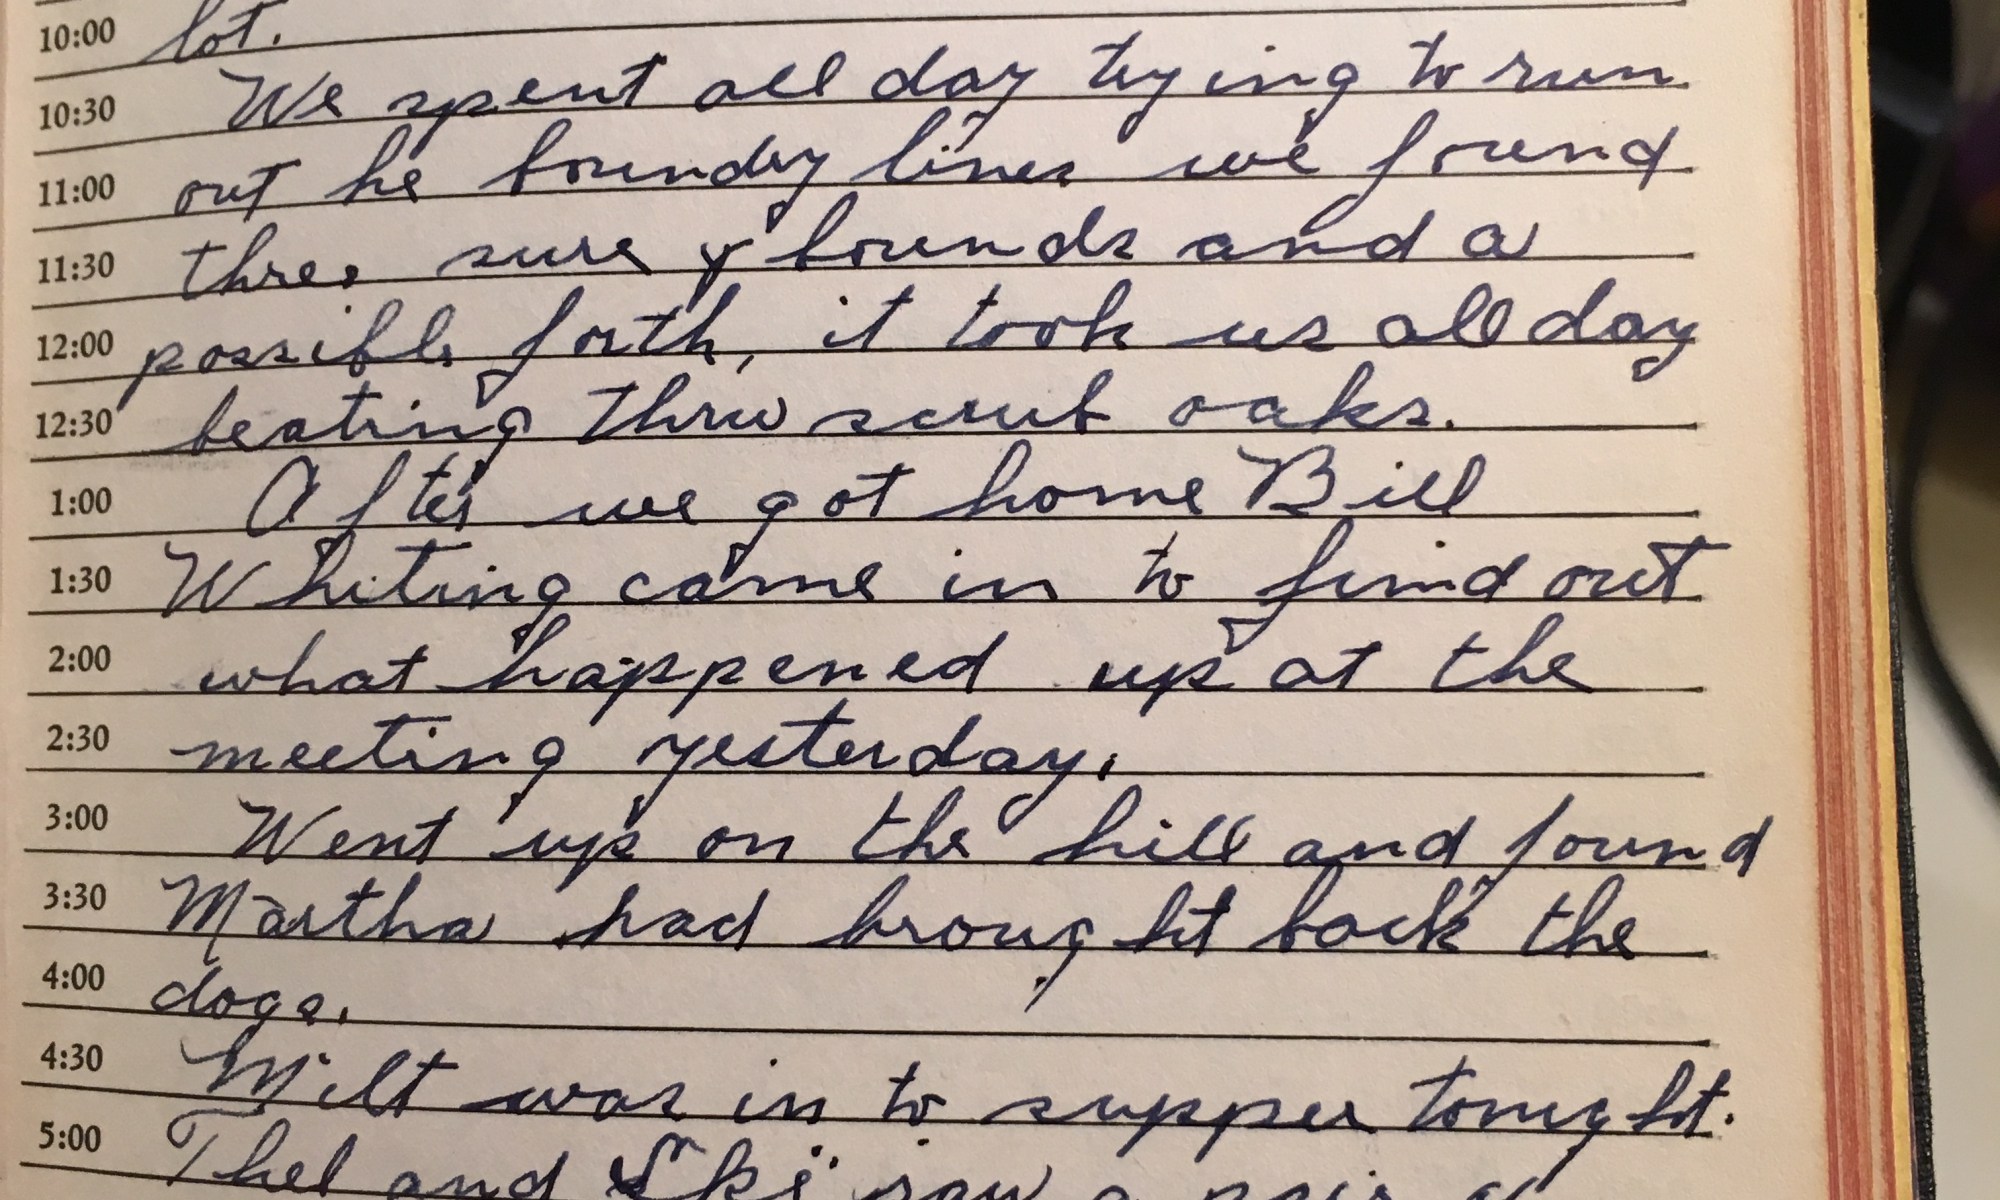 10:00 lot.
10:30 We spent all day trying to run
11:00 out he boundry lines we found
11:30 three sure y bounds and a
12:00 possible forth, it took us all day
12:30 beating thru scrub oaks.
1:00 After we got home Bill
1:30 Whiting came in to find out
2:00 what happened up at the
2:30 meeting yesterday.
3:00 Went up on the hill and found
3:30 Martha had brought back the
4:00 dogs.
4:30 Milt was in to supper tonight.
5:00 Thel and Ski saw a pair of